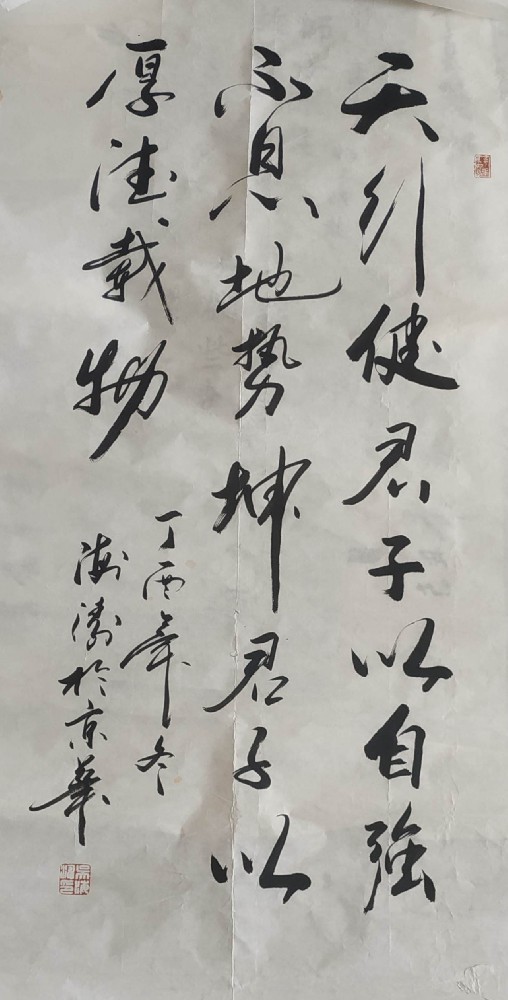 天行健君子以自強
不息地势坤君子以
厚德載物
丁酉年冬
海濤於京華